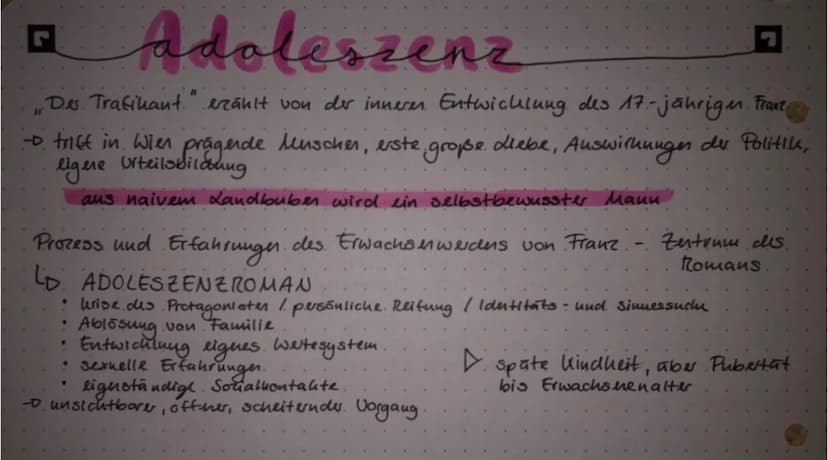 Adoleszenz
„Der Trafikant" erzählt von der inneren Entwicklung des 17-jährigen Franz
→ trifft in Wien prägende Menschen, erste große Liebe, Auswirkungen der Politik,
eigene Urteilsbildung
aus naivem Landbuben wird ein selbstbewusster Mann
Prozess und Erfahrungen des Erwachsenwerdens von Franz - Zentrum des
Romans
↳ ADOLESZENZROMAN
• Krise des Protagonisten / persönliche Reifung / Identitäts- und Sinnessuche
• Ablösung von Familie
• Entwicklung eigenes Wertesystem
• sexuelle Erfahrungen
• eigenständige Sozialkontakte
→ unsichtbarer, offener, scheiternder Vorgang
▷ späte Kindheit, aber Pubertät
bis Erwachsenenalter